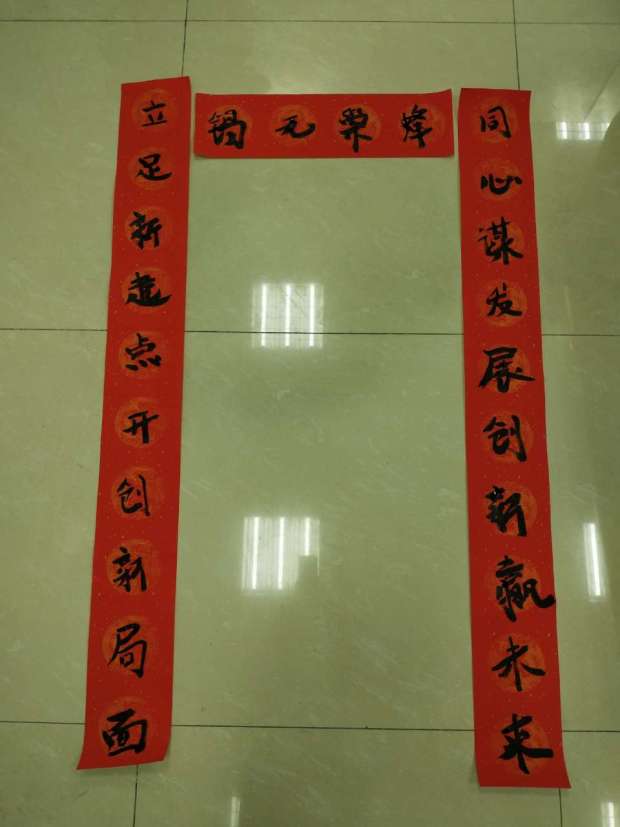 烽荣无锡
同心谋发展创新赢未来
立足新起点开创新局面